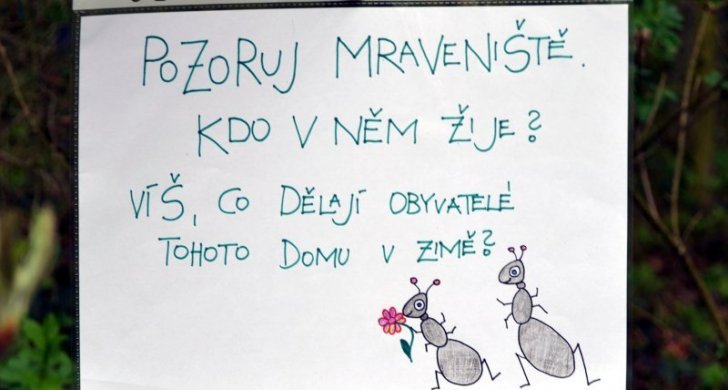 POZORUJ MRAVENIŠTĚ.
KDO V NĚM ŽIJE?
VÍŠ, CO DĚLAJÍ OBYVATELÉ
TOHOTO DOMU V ZIMĚ?